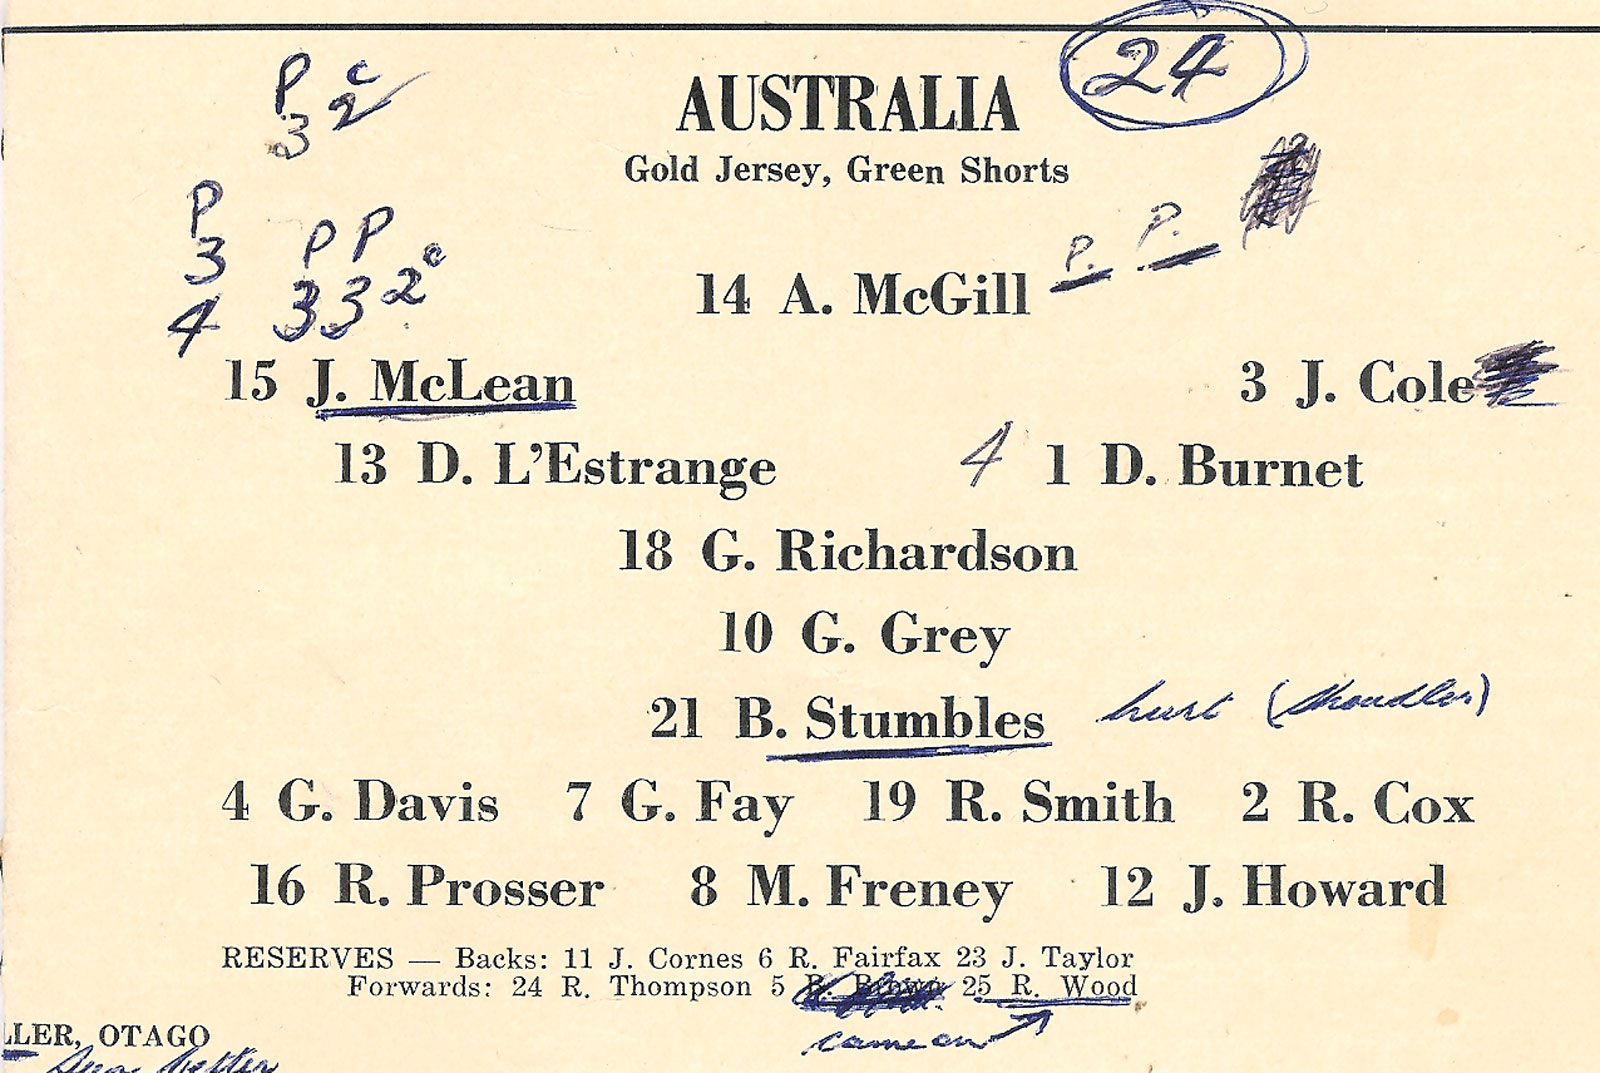 24
P c
3 2
AUSTRALIA
Gold Jersey, Green Shorts
P
3 P P
4 3 3 2 c
14 A. McGill P. P.
15 J. McLean 3 J. Cole
13 D. L'Estrange 4 1 D. Burnet
18 G. Richardson
10 G. Grey
21 B. Stumbles hurt (shoulder)
4 G. Davis 7 G. Fay 19 R. Smith 2 R. Cox
16 R. Prosser 8 M. Freney 12 J. Howard
RESERVES — Backs: 11 J. Cornes 6 R. Fairfax 23 J. Taylor
Forwards: 24 R. Thompson 5 B. Brown 25 R. Wood
came on
LLER, OTAGO